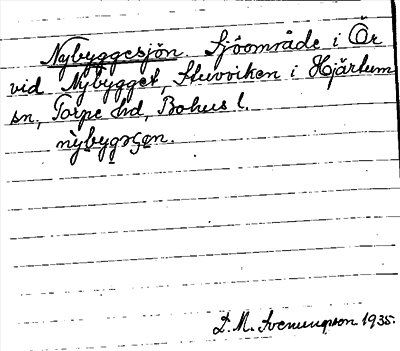 Nybyggesjön. Sjöområde i Ör
vid Nybygget, Stuvviken i Hjärtum
sn, Torpe hd, Bohus l.
nybygsçen.
D. M. Svenungsson 1935.